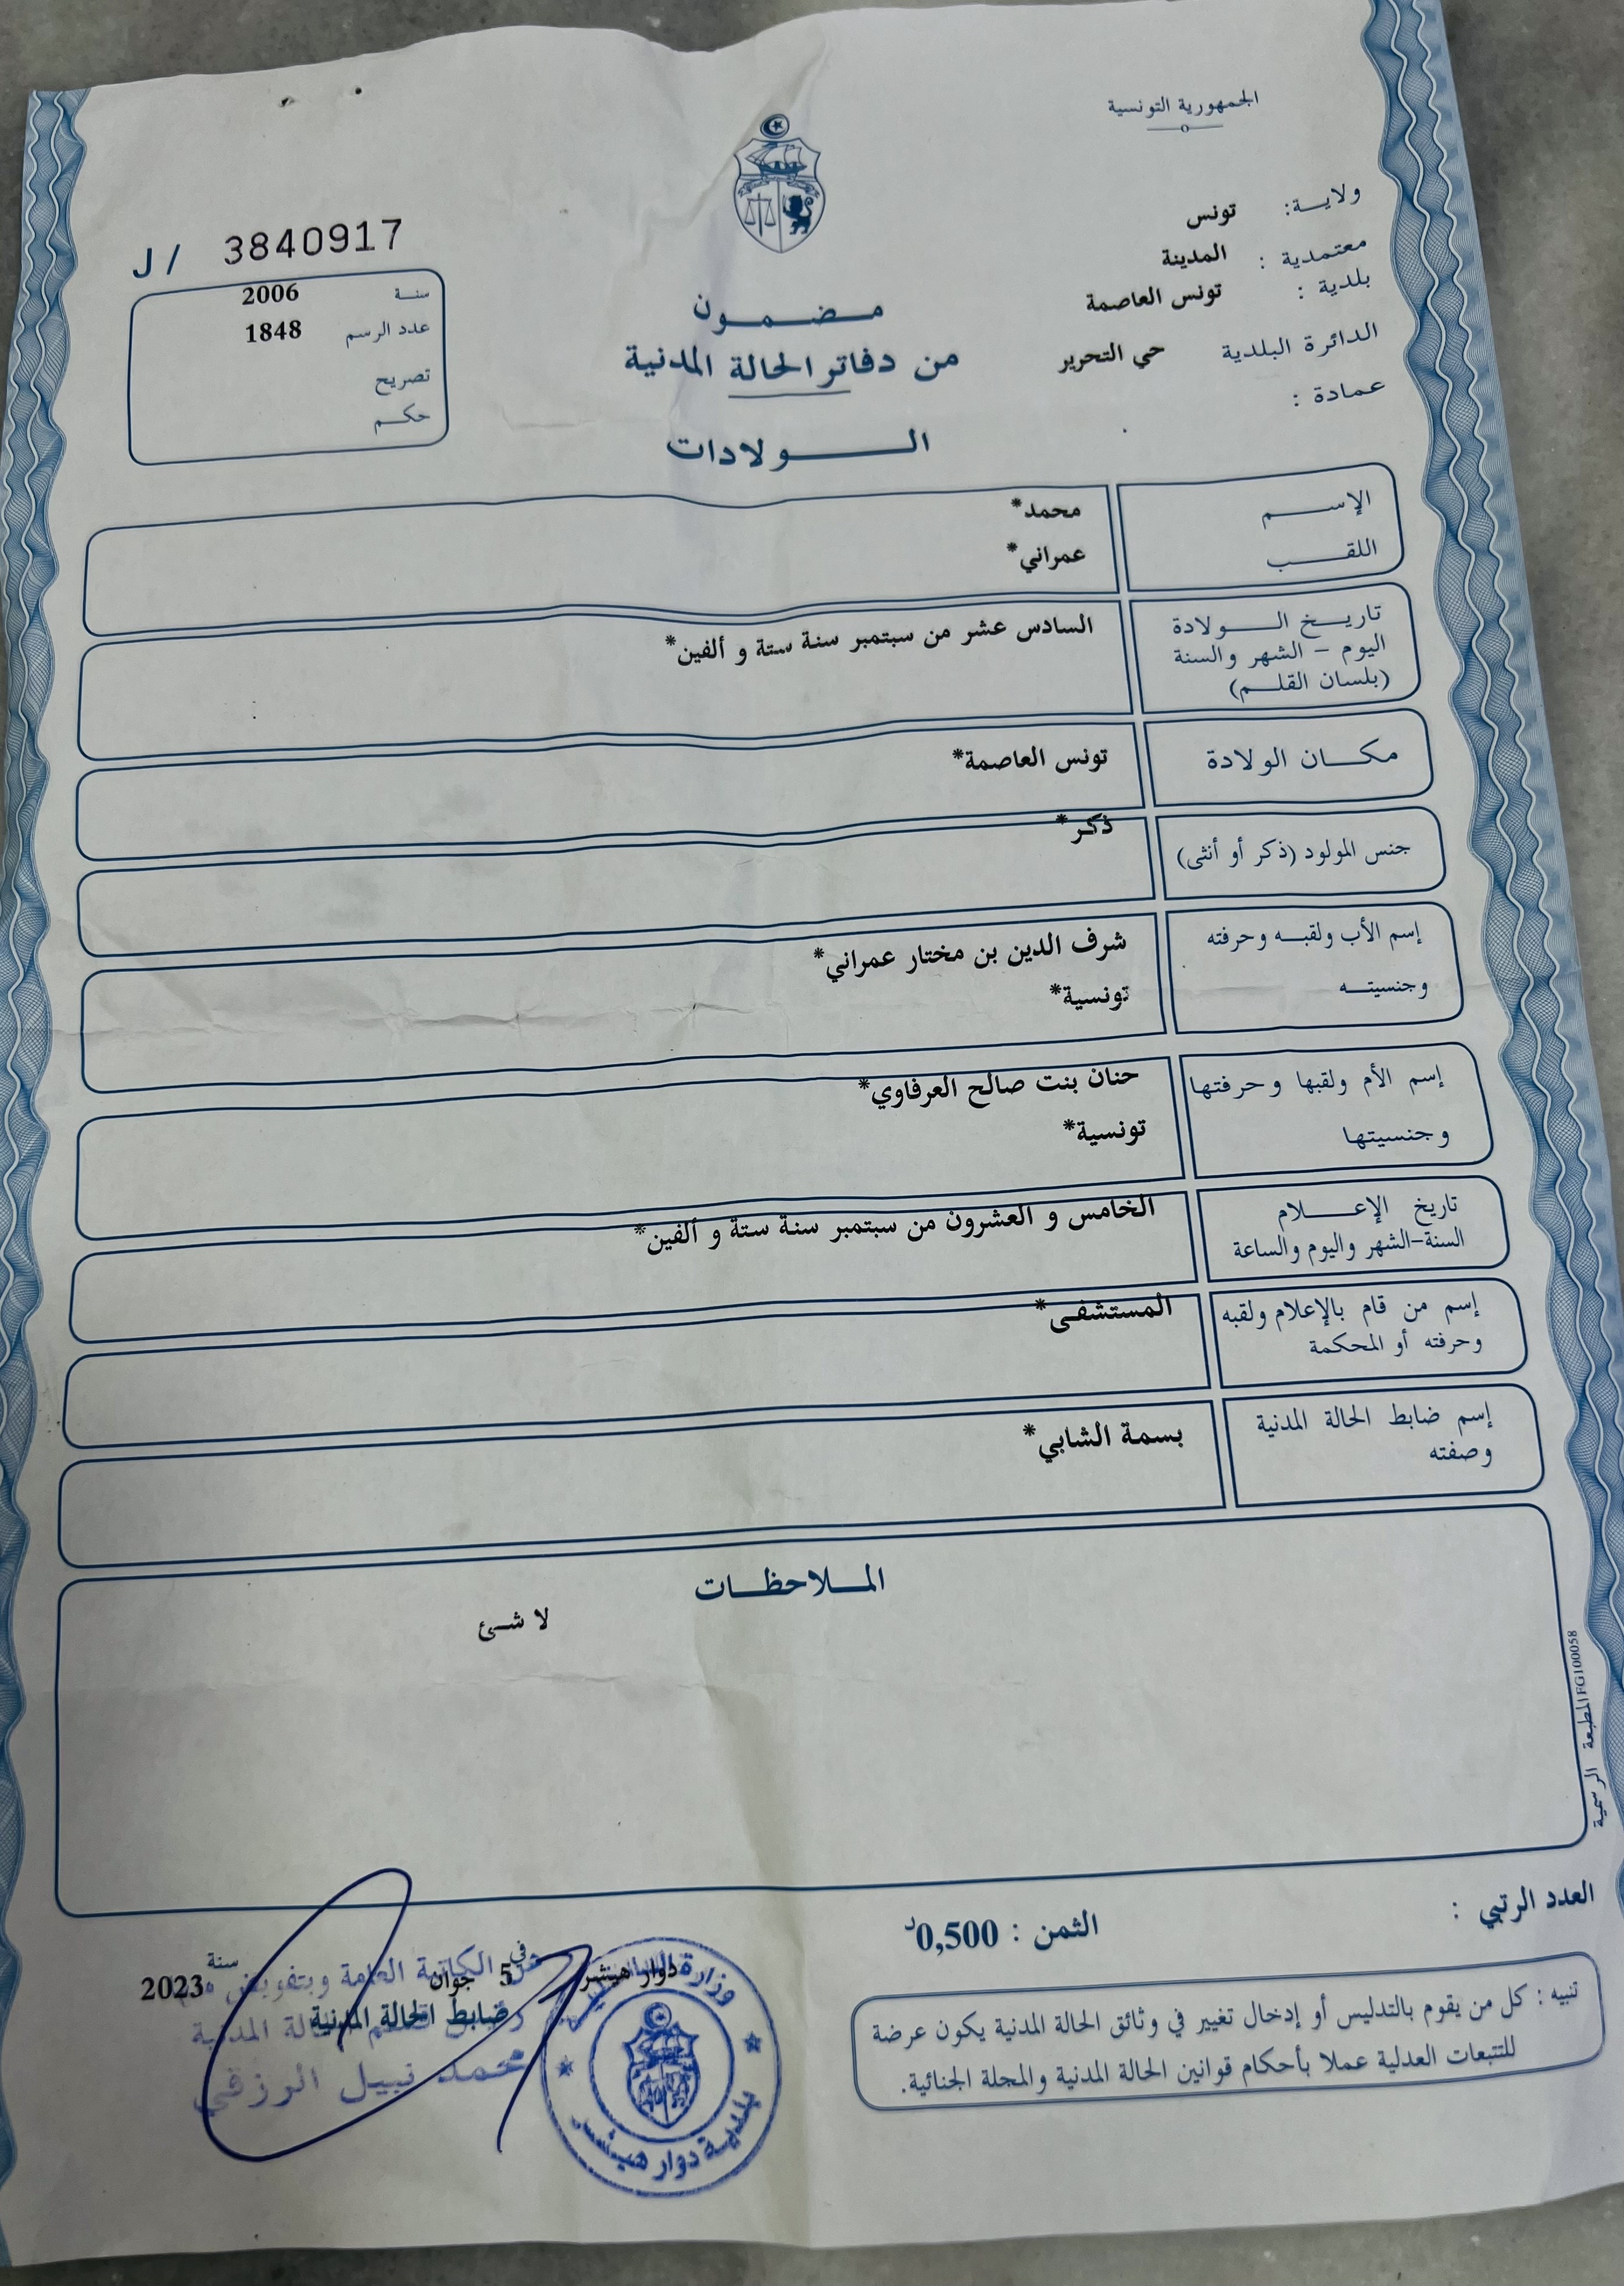 الجمهورية التونسية
ولاية: تونس
معتمدية : المدينة
بلدية : تونس العاصمة
الدائرة البلدية حي التحرير
عمادة :
J / 3840917
سنة 2006
عدد الرسم 1848
تصريح
حكم
مضمون
من دفاتر الحالة المدنية
الولادات
الإسم محمد*
اللقب عمراني*
تاريخ الولادة
اليوم - الشهر والسنة
(بلسان القلم)
السادس عشر من سبتمبر سنة ستة و ألفين*
مكان الولادة تونس العاصمة*
جنس المولود (ذكر أو أنثى) ذكر*
إسم الأب ولقبه وحرفته شرف الدين بن مختار عمراني*
وجنسيته تونسية*
إسم الأم ولقبها وحرفتها حنان بنت صالح العرفاوي*
وجنسيتها تونسية*
تاريخ الإعلام
السنة-الشهر واليوم والساعة
الخامس و العشرون من سبتمبر سنة ستة و ألفين*
إسم من قام بالإعلام ولقبه
وحرفته أو المحكمة
المستشفى*
إسم ضابط الحالة المدنية
وصفته
بسمة الشابي*
الملاحظات
لا شئ
المطبعة الرسمية FG100058
العدد الرتبي :
الثمن : 0,500د
تنبيه : كل من يقوم بالتدليس أو إدخال تغيير في وثائق الحالة المدنية يكون عرضة
للتتبعات العدلية عملا بأحكام قوانين الحالة المدنية والمجلة الجنائية.
دوار هيشر في 5 جوان سنة 2023
ضابط الحالة المدنية
عن الكاتبة العامة وبتفويض
الحالة المدنية
محمد نبيل الرزقي
وزارة
بلدية دوار هيشر